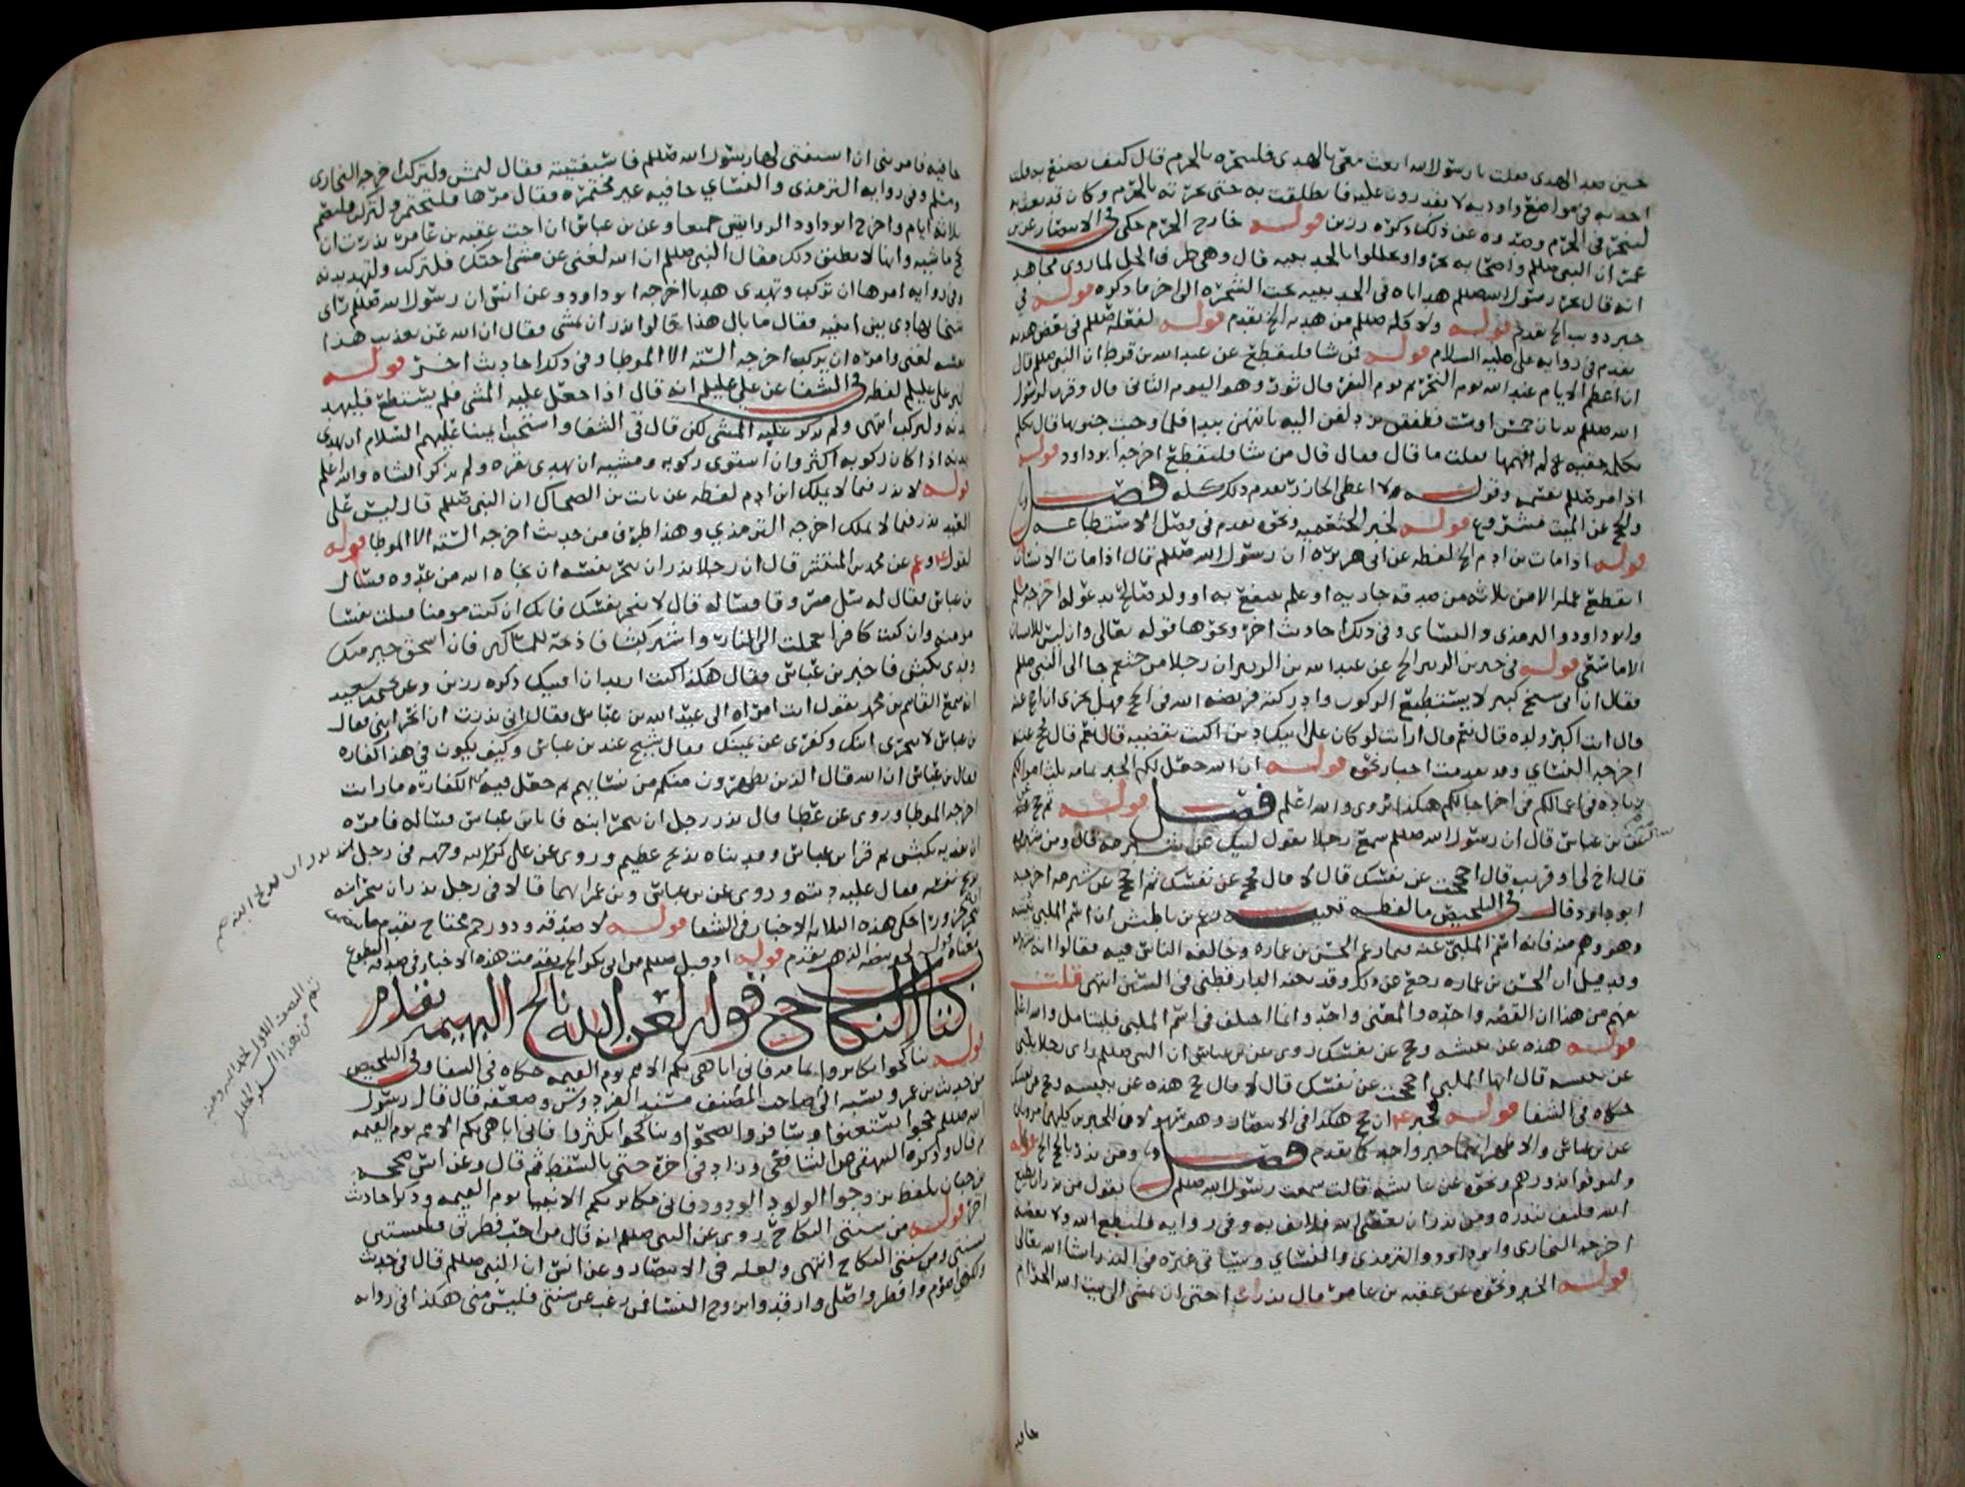 حين صد الهدى فقلت يا رسول الله ابعث معى بالهدى فلينحره بالحرم قال كيف تصنع به قلت
اخذ به فى مواضع واودية لا يقدرون عليه فانطلقت به حتى نحرته بالحرم وكان قد بعث به
لينحر فى الحرم وصدوه عن ذلك ذكره رزين قوله خارج الحرم حكى فى الانتصار عن بن
عمر ان النبى صللم واصحابه نحروا وحللوا بالحديبيه قال وهى طرف الحل لما روى مجاهد
انه قال نحر رسول الله صللم هداياه فى الحديبيه تحت الشجره الى اخر ما ذكره قوله فى
خبر ذويب الخ تقدم قوله ولاكله صللم من هديه الخ تقدم قوله لفعله صللم فى بعض هديه
تقدم فى روايه على عليه السلام قوله من شا فليقطع عن عبد الله بن قرط ان النبى صللم قال
ان اعظم الايام عند الله يوم النحر ثم يوم النفر قال ثور وهو اليوم الثانى قال وقرب لرسول
الله صللم بدنات خمس او ست فطفقن يزدلفن اليه بايتهن يبدا فلما وجبت جنوبها قال تكلم
بكلمه خفيه لم افهمها فقلت ما قال فقال قال من شا فليقطع اخرجه ابو داود قوله
اذ امر صللم بقسمه وقوله ولا اعطى الجازر تقدم ذلك كله فصل
والحج عن الميت مشروع قوله لخبر الخثعميه ونحوه تقدم فى فصل الاستطاعه
قوله اذا مات بن ادم الخ لفظه عن ابى هريره ان رسول الله صللم قال اذا مات الانسان
انقطع عمله الا من ثلاثه من صدقه جاريه او علم ينتفع به او ولد صالح يدعو له اخرجه مسلم
وابو داود والترمذى والنساى وفى ذلك احاديث اخر ونحوها قوله تعالى وان ليس للانسان
الا ما سعى قوله فى خبر بن الزبير الخ عن عبد الله بن الزبير ان رجلا من خثعم جا الى النبى صللم
فقال ان ابى شيخ كبير لا يستطيع الركوب وادركته فريضه الله فى الحج فهل يجزى ان احج عنه
قال انت اكبر ولده قال نعم قال ارايت لو كان على ابيك دين اكنت تقضيه قال نعم قال فحج عنه
اخرجه النساى وقد تقدمت اخبار نحوه قوله ان الله جعل لكم الخبر تمامه ثلث اموالكم
زياده فى اعمالكم فى اخر اجالكم هكذا روى والله اعلم فصل قوله ثم حج عن
عن بن عباس قال ان رسول الله صللم سمع رجلا يقول لبيك عن شبرمه قال ومن شبرمه
قال اخ لى او قريب قال احججت عن نفسك قال لا قال حج عن نفسك ثم احج عن شبرمه اخرجه
ابو داود قال فى التلخيص ما لفظه تنبيه زعم بن باطيش ان اسم الملبى نبيشه
وهو وهم منه فانه اسم الملبى عنه فيما زعم الحسن بن عماره وخالفه الناس فيه فقالوا انه شبرمه
وقد قيل ان الحسن بن عماره رجع عن ذلك وقد بينه الدارقطنى فى السنن انتهى قلت
يفهم من هذا ان القصه واحده والمعنى واحد وانما اختلف فى اسم الملبى فليتامل والله اعلم
قوله هذه عن نبيشه وحج عن نفسك روى عن بن عباس ان النبى صللم راى رجلا يلبى
عن نبيشه قال ايها الملبى احججت عن نفسك قال لا قال حج هذه عن نبيشه وحج عن نفسك
حكاه فى الشفا قوله ان حج هكذا فى الانتصار وهو
عن بن عباس والاظهر انهما خبر واحد كما تقدم فصل ومن نذر بالحج الخ قوله
وليوفوا نذورهم ونحوه عن عايشه قالت سمعت رسول الله صللم يقول من نذر ان يطيع
الله فليف بنذره ومن نذر ان يعصى الله فلا يف به وفى روايه فليطع الله ولا يعصه
اخرجه البخارى وابو داود والترمذى والنساى وسياتى غيره فى النذر انشا الله تعالى
قوله الخبر ونحوه عن عقبه بن عامر قال نذرت اختى ان تمشى الى بيت الله الحرام
حافيه
حافيه فامرتنى ان استفتى لها رسول الله صللم فاستفتيته فقال لتمش ولتركب اخرجه البخارى
ومسلم وفى روايه الترمذى والنساى حافيه غير مختمره فقال مرها فلتختمر ولتركب ولتصم
ثلاثه ايام واخرج ابو داود الروايتين جميعا وعن بن عباس ان اخت عقبه بن عامر نذرت ان
تحج ماشيه وانها لا تطيق ذلك فقال النبى صللم ان الله لغنى عن مشى اختك فلتركب ولتهد بدنه
وفى روايه امرها ان تركب وتهدى هديا اخرجه ابو داود وعن انس ان رسول الله صللم راى
شيخا يهادى بين ابنيه فقال ما بال هذا قالوا نذر ان يمشى فقال ان الله عن تعذيب هذا
نفسه لغنى وامره ان يركب اخرجه السته الا الموطا وفى ذلك احاديث اخر قوله
لخبر على عليلم لفظه فى الشفا عن على عليلم انه قال اذا جعل عليه المشى فلم يستطع فليهد
بدنه وليركب انتهى ولم يذكر عليه المشى لكن قال فى الشفا واستحب ايمتنا عليهم السلام ان يهدى
بدنه اذا كان ركوبه اكثر وان استوى ركوبه ومشيه ان يهدى بقره ولم يذكر الشاه والله اعلم
قوله لا نذر فيما لا يملك ابن ادم لفظه عن ثابت بن الضحاك ان النبى صللم قال ليس على
العبد نذر فيما لا يملك اخرجه الترمذى وهذا طرف من حديث اخرجه السته الا الموطا قوله
لقول وعن محمد بن المنتشر قال ان رجلا نذر ان ينحر نفسه ان نجاه الله من عدوه فسال
بن عباس فقال له سل مسروقا فساله قال لا تنحر نفسك فانك ان كنت مومنا قتلت نفسا
مومنه وان كنت كافرا تعجلت الى النار واشتر كبشا فاذبحه للمساكين فان اسحق خير منك
وفدى بكبش فاخبر بن عباس فقال هكذا كنت اردت ان افتيك ذكره رزين وعن يحيى بن سعيد
انه سمع القاسم بن محمد يقول اتت امراه الى عبد الله بن عباس فقالت انى نذرت ان انحر ابنى فقال
بن عباس لا تنحرى ابنك وكفرى عن يمينك فقال شيخ عند بن عباس وكيف يكون فى هذا كفاره
فقال بن عباس ان الله قال الذين يظهرون منكم من نسايهم ثم جعل فيه من الكفاره ما رايت
اخرجه الموطا وروى عن عطا قال نذر رجل ان ينحر ابنه فاتا بن عباس فساله فامره
ان يفديه بكبش ثم قرا بن عباس وفديناه بذبح عظيم وروى عن على كرم الله وجهه فى رجل نذر ان
يذبح نفسه فقال عليه ديته وروى عن بن عباس وبن عمر انهما قالا فى رجل نذر ان ينحر ابنه
ينحر جزورا حكى هذه الثلاثه الاخبار فى الشفا قوله لا صدقه وذو رحم محتاج تقدم معناه
قوله الدهر تقدم قوله اذ قبل صللم من ابى بكر الخ تقدمت هذه الاخبار فى صدقه التطوع
كتاب النكاح قوله لعن الله ناكح البهيمه تقدم
قوله تناكحوا تكاثروا تمامه فانى اباهى بكم الامم يوم القيمه حكاه فى الشفا وفى التلخيص
من حديث بن عمر ونسبه الى صاحب المصنف مسند الفردوس وضعفه قال قال رسول
الله صللم حجوا تستغنوا وسافروا تصحوا وتناكحوا تكثروا فانى اباهى بكم الامم يوم القيمه
ثم قال وذكره البيهقى عن الشافعى وزاد فى اخره حتى بالسقط ثم قال وعن انس صححه
بن حبان بلفظ تزوجوا الولود الودود فانى مكاثر بكم الانبيا يوم القيمه وذكر احاديث
اخر قوله من سنتى النكاح روى عن النبى صللم انه قال من احب فطرتى فليستن
بسنتى ومن سنتى النكاح انتهى ولعله فى الانتصار وعن انس ان النبى صللم قال فى حديث
ولكنى اصوم وافطر واصلى وارقد واتزوج النسا فمن رغب عن سنتى فليس منى هكذا فى روايه